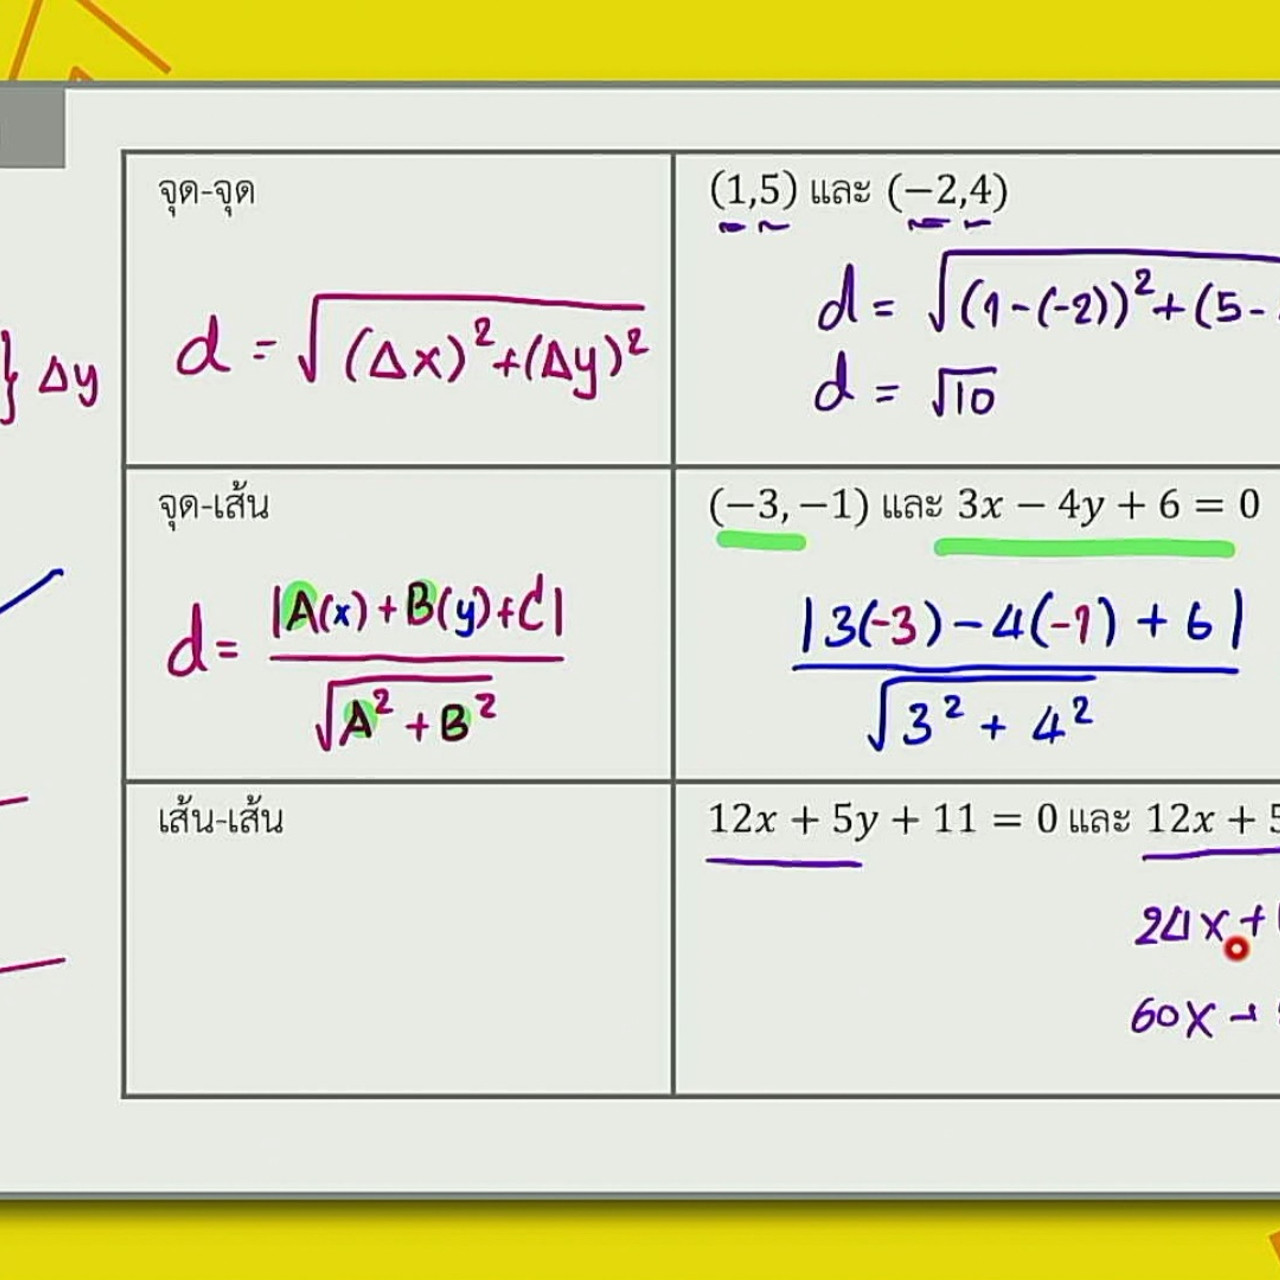 จุด-จุด
d = √(Δx)²+(Δy)²
} Δy
(1,5) และ (−2,4)
d = √(1-(-2))²+(5-
d = √10
จุด-เส้น
d = |A(x)+B(y)+C| / √A² + B²
(−3, −1) และ 3x − 4y + 6 = 0
|3(-3) - 4(-1) + 6| / √3² + 4²
เส้น-เส้น
12x + 5y + 11 = 0 และ 12x + 5
24x +
60x +